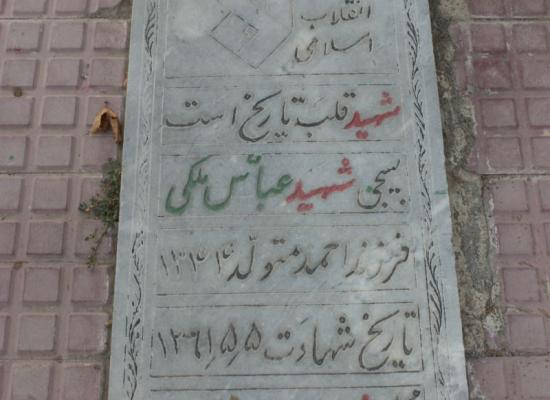 انقلاب
اسلامی
شهید قلب تاریخ است
بسیجی شهید عباس ملکی
فرزند احمد متولد ۱۳۳۴
تاریخ شهادت ۱۳۶۱٫۵٫۵